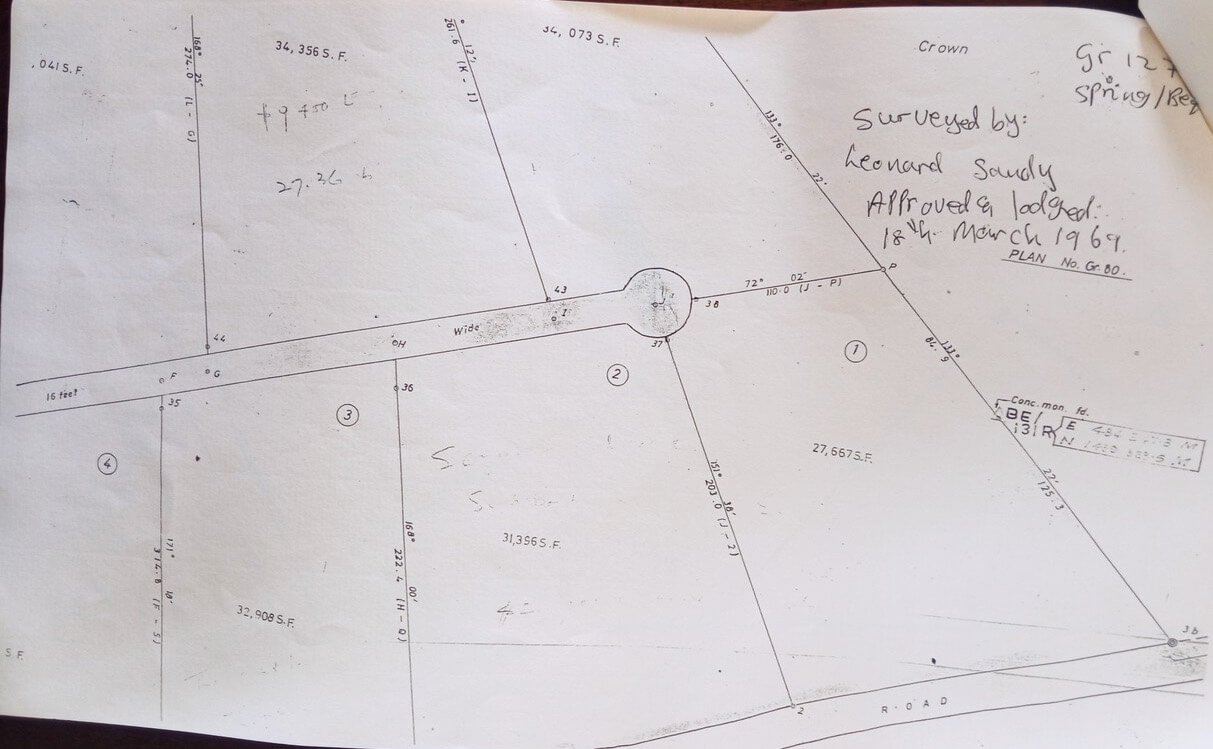 .041 S.F.
168° 25'
274.0 (L - G)
34,356 S.F.
27.36
261.6 (K - I)
34,073 S.F.
Crown
Gr 127
Spring/Beq
Surveyed by:
Leonard Sandy
Approved & lodged:
18th March 1969.
PLAN No. Gr. 80.
133° 22'
176.0
P
72° 02'
110.0 (J - P)
43
I
J
38
37
Wide
44
H
F
G
16 feet
35
36
1
2
3
4
133°
84.9
Conc. mon. fd.
BE/
131R
E
N
22'
125.3
27,667 S.F.
151° 38'
203.0 (J - 2)
31,396 S.F.
168° 00'
222.4 (H - Q)
171° 18'
314.8 (F - S)
32,908 S.F.
S.F.
3b
2
ROAD